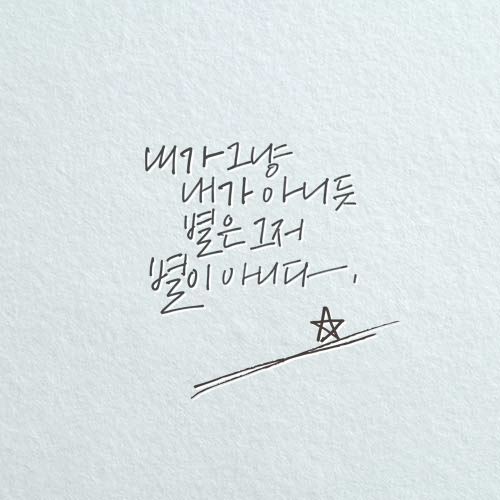 내가 그냥
내가 아니듯
별은 그저
별이 아니다.